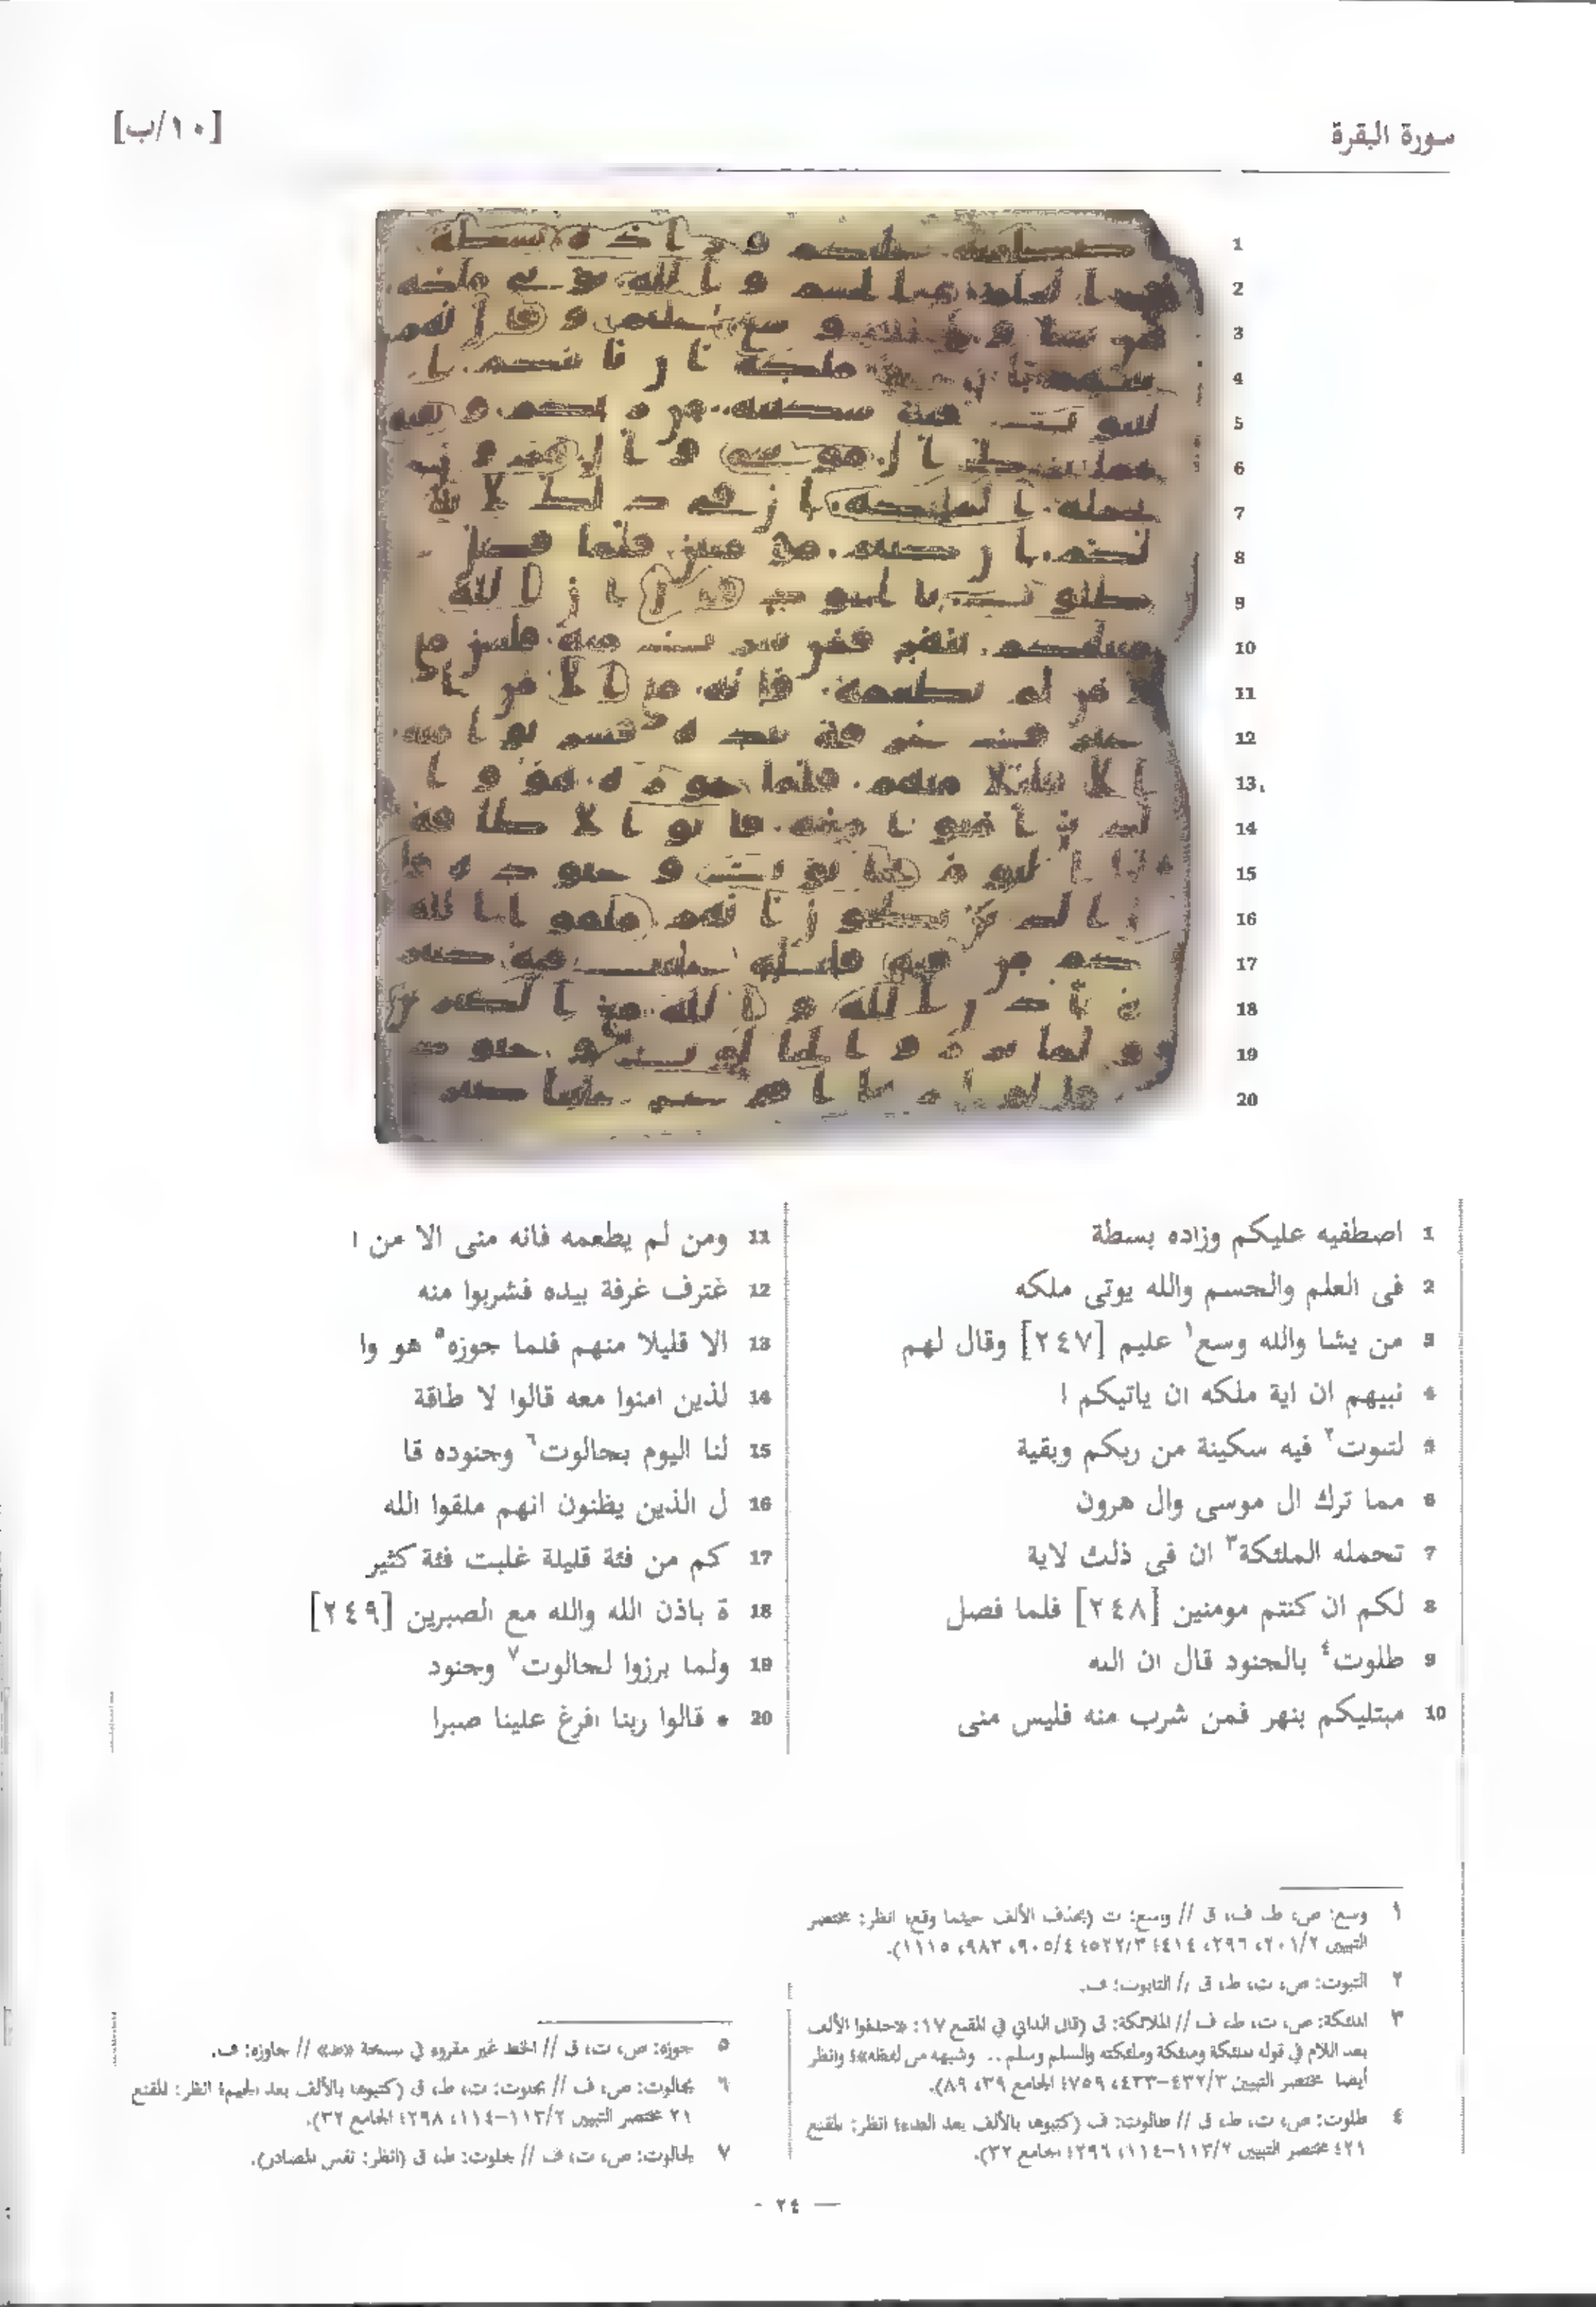 سورة البقرة
[١٠/ب]
1
2
3
4
5
6
7
8
9
10
11
12
13
14
15
16
17
18
19
20
1 اصطفيه عليكم وزاده بسطة
2 فى العلم والجسم والله يوتى ملكه
3 من يشا والله وسع١ عليم [٢٤٧] وقال لهم
4 نبيهم ان اية ملكه ان ياتيكم ا
5 لتبوت٢ فيه سكينة من ربكم وبقية
6 مما ترك ال موسى وال هرون
7 تحمله الملئكة٣ ان فى ذلك لاية
8 لكم ان كنتم مومنين [٢٤٨] فلما فصل
9 طلوت٤ بالجنود قال ان الله
10 مبتليكم بنهر فمن شرب منه فليس منى
11 ومن لم يطعمه فانه منى الا من ا
12 غترف غرفة بيده فشربوا منه
13 الا قليلا منهم فلما جوزه٥ هو وا
14 لذين امنوا معه قالوا لا طاقة
15 لنا اليوم بجالوت٦ وجنوده قا
16 ل الذين يظنون انهم ملقوا الله
17 كم من فئة قليلة غلبت فئة كثير
18 ة باذن الله والله مع الصبرين [٢٤٩]
19 ولما برزوا لجالوت٧ وجنود
20 ه قالوا ربنا افرغ علينا صبرا
١ وسع: ص، ط، ف، ق // وسع: ت (بحذف الألف حيثما وقع؛ انظر: مختصر
التبيين ٢٠١/٢، ٢٩٦، ٤١٤؛ ٥٢٢/٣؛ ٩٠٥/٤، ٩٨٣، ١١١٥).
٢ التبوت: ص، ت، ط، ق // التابوت: ف.
٣ الملئكة: ص، ت، ط، ف // الملائكة: ق (قال الداني في المقنع ١٧: «حذفوا الألف
بعد اللام في قوله ملئكة وملئكة وملئكته والسلم وسلم .. وشبهه من لفظه»؛ وانظر
أيضا مختصر التبيين ٤٣٢/٣-٤٣٣، ٧٥٩؛ الجامع ٣٩، ٨٩).
٤ طلوت: ص، ت، ط، ق // طالوت: ف (كتبوها بالألف بعد الطاء؛ انظر: المقنع
٢١؛ مختصر التبيين ١١٣/٢-١١٤، ٢٩٦؛ الجامع ٣٢).
٥ جوزه: ص، ت، ق // الخط غير مقروء في نسخة «ط» // جاوزه: ف.
٦ بجالوت: ص، ف // بجلوت: ت، ط، ق (كتبوها بالألف بعد الجيم؛ انظر: المقنع
٢١ مختصر التبيين ١١٣/٢-١١٤، ٢٩٨؛ الجامع ٣٢).
٧ لجالوت: ص، ت، ف // جلوت: ط، ق (انظر: نفس المصادر).
— ٢٤ -